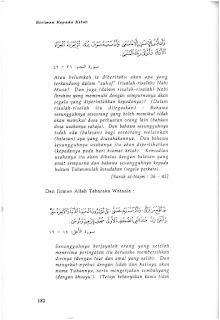 Beriman Kepada Kitab
سورة النجم: ٣٦ - ٤٢
Atau belumkah ia diberitahu akan apa yang
terkandung dalam "suhuf" (risalah-risalah) Nabi
Musa? Dan juga (dalam risalah-risalah) Nabi
Ibrahim yang memenuhi dengan sempurnanya akan
segala yang diperintahkan kepadanya? (Dalam
risalah-risalah itu ditegaskan) : Bahawa
sesungguhnya seseorang yang boleh memikul tidak
akan memikul dosa perbuatan orang lain (bahkan
dosa usahanya sahaja). Dan bahawa sesungguhnya
tidak ada (balasan) bagi seseorang melainkan
(balasan) apa yang diusahakannya. Dan bahawa
sesungguhnya usahanya itu akan diperlihatkan
(kepadanya pada hari kiamat kelak). Kemudian
usahanya itu akan dibalas dengan balasan yang
amat sempurna dan bahawa sesungguhnya kepada
hukum Tuhanmulah kesudahan (segala perkara).
[Surah al-Najm : 36 - 42]
Dan firman Allah Tabaraka Wataala :
سورة الأعلى: ١٤ - ١٩
Sesungguhnya berjayalah orang yang setelah
menerima peringatan itu berusaha membersihkan
dirinya (dengan taat dan amal yang salih). Dan
menyebut-nyebut dengan lidah dan hatinya akan
nama Tuhannya, serta mengerjakan sembahyang
(dengan khusyu'). (Tetapi kebanyakan kamu tidak
182